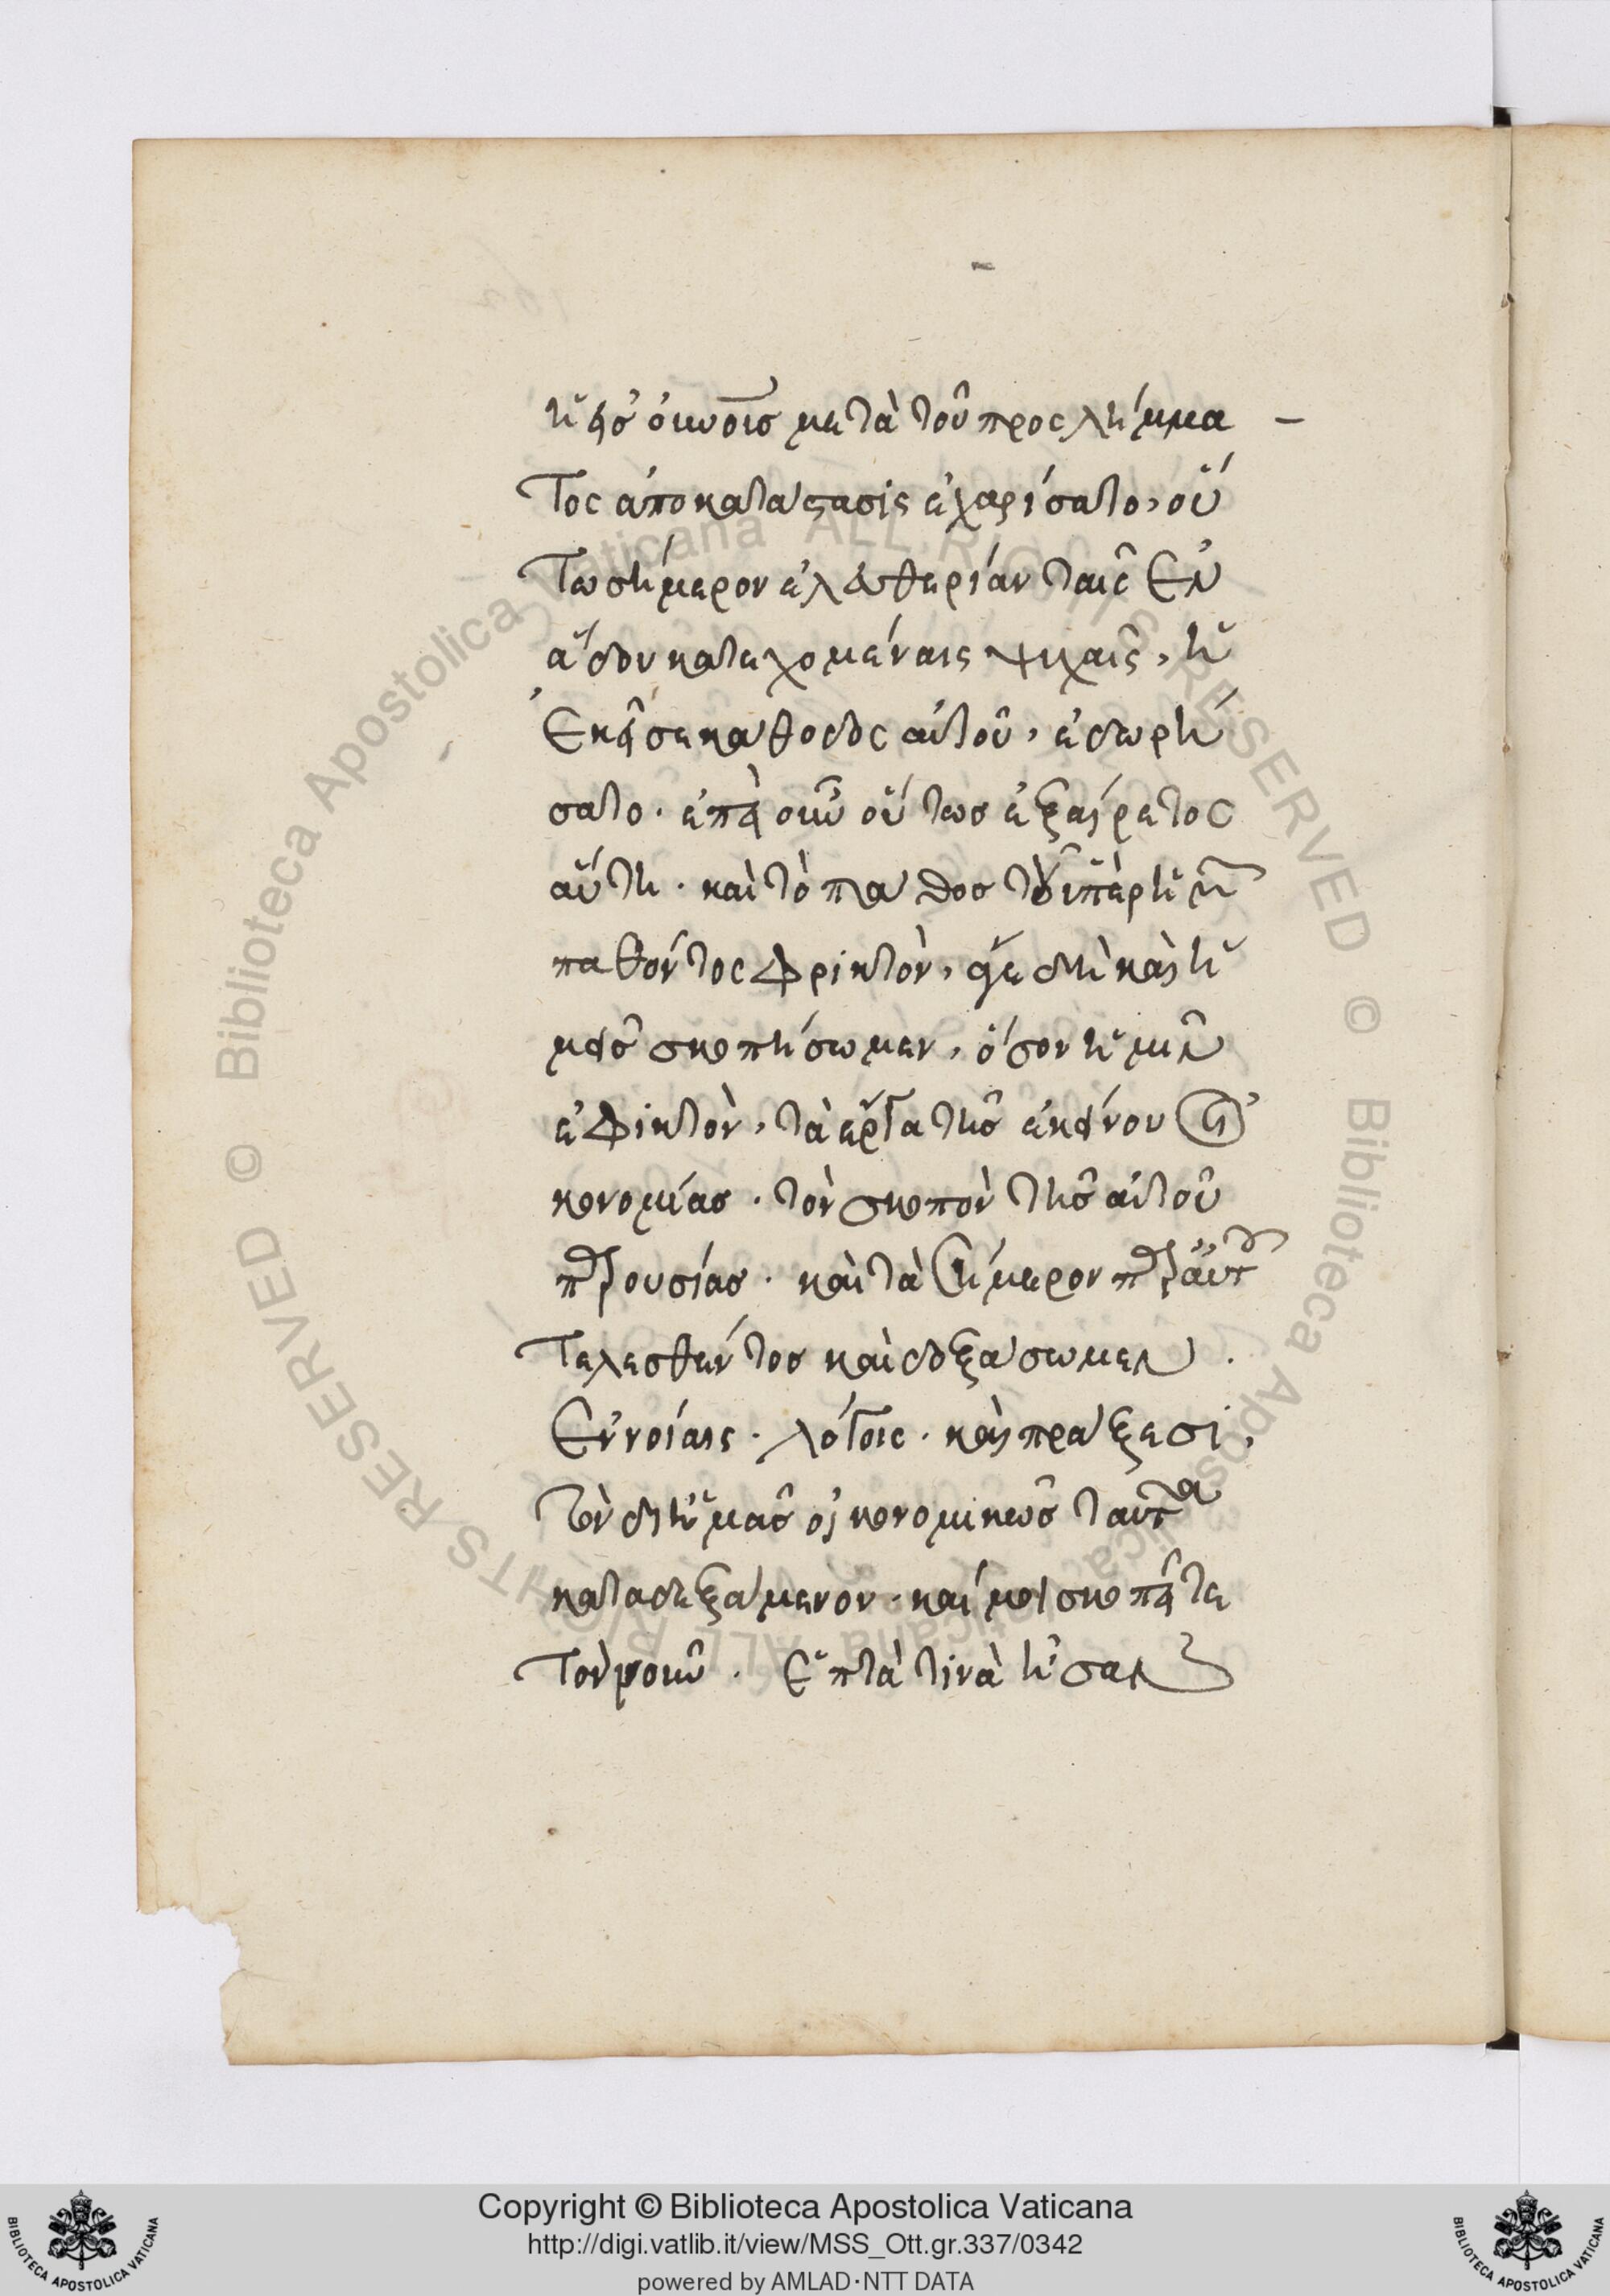 ἡ εἰς οὐνοῖς μετὰ τοῦ προσλήμμα
τος ἀποκατάστασις ἐχαρίσατο, οὕ
τω σήμερον ἐλευθερίαν ταῖς ἐν
ἅδου κατεχομέναις ψυχαῖς, ἡ
ἐκεῖσε κάθοδος αὐτοῦ, ἐδωρή
σατο. ἐπεὶ οὖν οὕτως ἐξαίρετος
αὕτη. καὶ τὸ πάθος τοῦ ὑπὲρ ἡμῶν
παθόντος φρικτὸν, φέρε δὴ καὶ ἡ
μεῖς σκοπήσωμεν, ὅσον ἡμῖν
ἐφικτὸν, τὰ ἔργα τῆς ἐκείνου οἰ
κονομίας. τὸν σκοπὸν τῆς αὐτοῦ
παρουσίας. καὶ τὰ σήμερον παρ' αὐτοῦ
τελεσθέντος καὶ δοξάσωμεν.
ἐννοίαις. λόγοις. καὶ πράξεσι,
τὸν δι' ἡμᾶς οἰκονομικῶς ταῦτα
καταδεξάμενον. καί μοι σκοπεῖτε
τὸν νοῦν. ἑπτά τινα ἦσαν
Copyright © Biblioteca Apostolica Vaticana
http://digi.vatlib.it/view/MSS_Ott.gr.337/0342
powered by AMLAD·NTT DATA
BIBLIOTECA APOSTOLICA VATICANA
BIBLIOTECA APOSTOLICA VATICANA
© Biblioteca Apostolica Vaticana ALL RIGHTS RESERVED
© Biblioteca Apostolica Vaticana ALL RIGHTS RESERVED